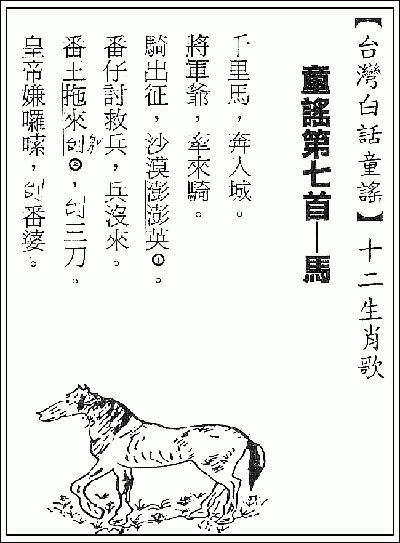 【台灣白話童謠】十二生肖歌
童謠第七首─馬
千里馬，奔人城。
將軍爺，牽來騎。
騎出征，沙漠澎澎英❶。
番仔討救兵，兵沒來。
番王拖來刣❷，刣三刀。
皇帝嫌囉嗦，刣番婆。